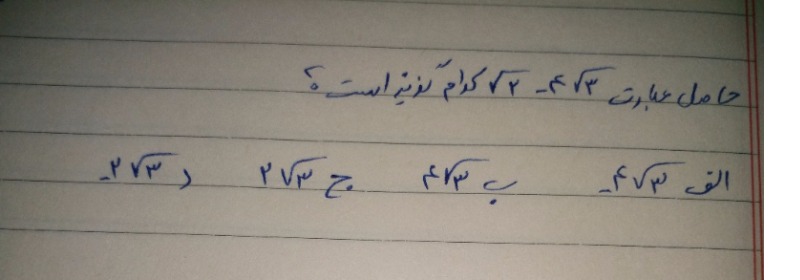 حاصل عبارت ۴√۳ - ۲√ کدام گزینه است؟
الف -۴√۳ ب ۴√۳ ج ۲√۳ د -۲√۳